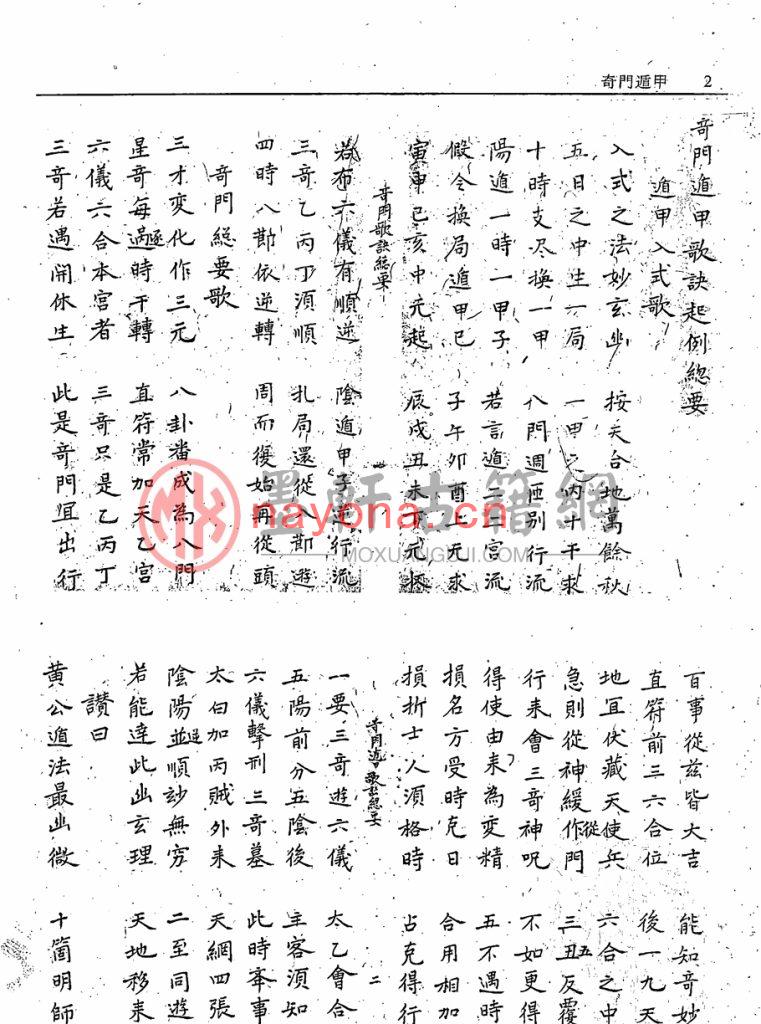 奇門遁甲 2
奇門遁甲歌訣起例總要
遁甲入式歌
入式之法妙玄幽 按天合地萬餘秋
五日之中生一局 一甲之內十干求
十時支尽換一甲 八門週匝別行流
陽遁一時一甲子 若言遁二二宮流
假令換局遁甲己 子午卯酉上元求
寅申巳亥中元起 辰戌丑未下元
奇門歌訣總要 一
若布六儀有順逆 陰遁甲子逆行流
三奇乙丙丁須順 孔局還從八節遊
四時八節依逆轉 周而復始再從頭
奇門總要歌
三才变化作三元 八卦番成為八門
星奇每過逐時干轉 直符常加天乙宮
六儀六合本宮者 三奇只是乙丙丁
三奇若遇開休生 此是奇門宜出行
百事從茲皆大吉 能知奇妙
直符前三六合位 後一九天
地宜伏藏天使兵 六合之中
急則從神緩作從門 三五反覆
行来會三奇神呪 不如更得
得使由来為变精 五不遇時
損名方受時克日 合用相加
損折士人須格時 占克得行
奇門遁歌訣總要 二
一要三奇遊六儀 太乙會合
五陽前分五陰後 主客須知
六儀擊刑三奇墓 此時举事
太白加丙賊外来 天網四張
陰陽並順逆妙無穷 二至同遊
若能達此幽玄理 天地移来
讚曰
黄公遁法最幽微 十箇明師
墨軒古籍網
nayona.cn
MOXUANGUJI.COM